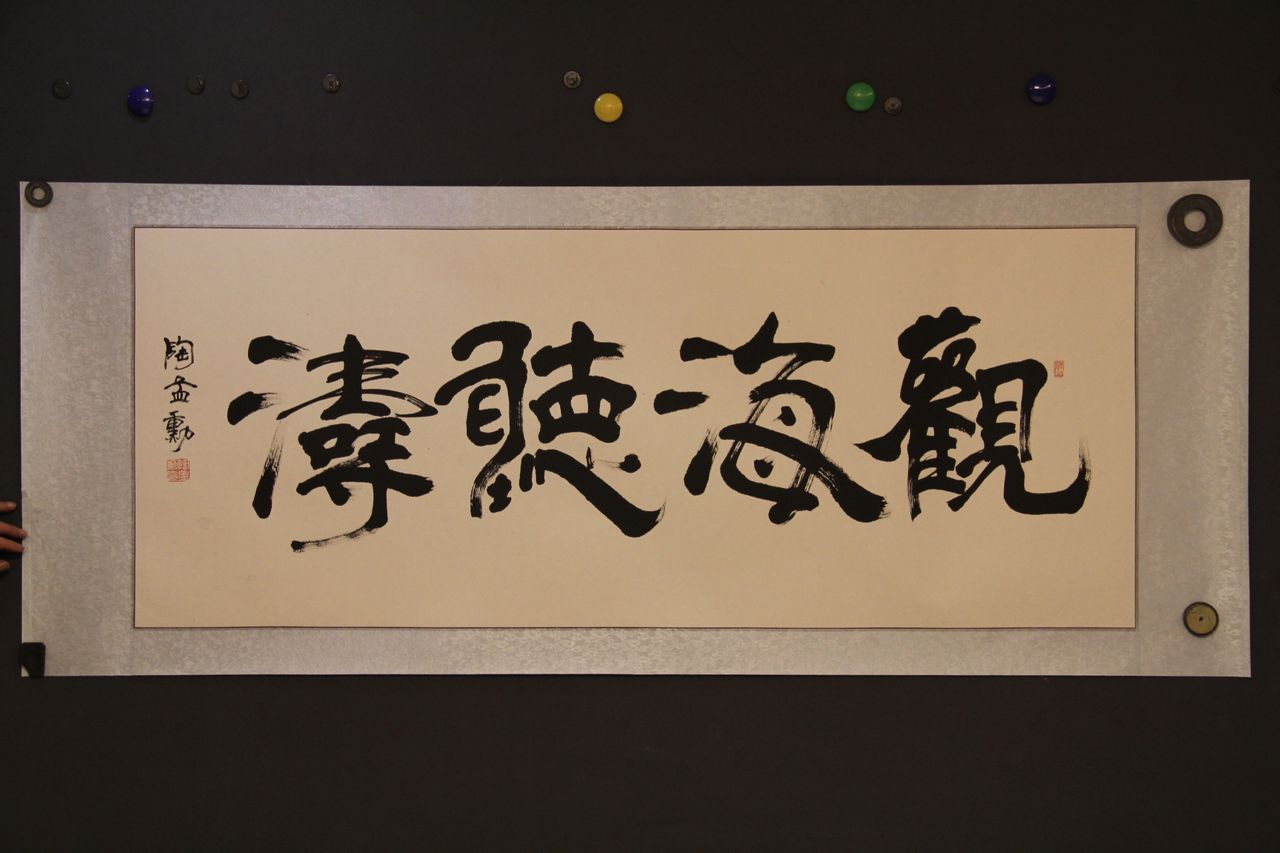 觀海聽濤
陶孟勳